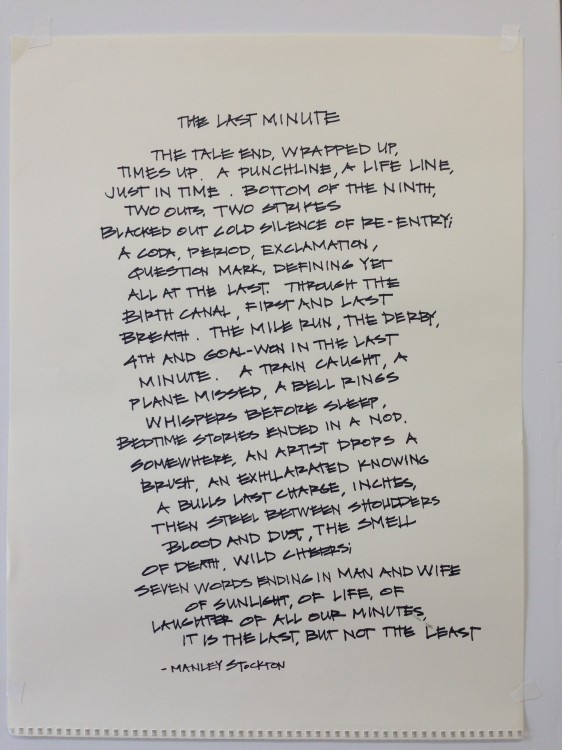 THE LAST MINUTE
THE TALE END, WRAPPED UP,
TIMES UP. A PUNCHLINE, A LIFE LINE,
JUST IN TIME. BOTTOM OF THE NINTH,
TWO OUTS, TWO STRIKES
BLACKED OUT COLD SILENCE OF RE-ENTRY;
A CODA, PERIOD, EXCLAMATION,
QUESTION MARK, DEFINING YET
ALL AT THE LAST. THROUGH THE
BIRTH CANAL, FIRST AND LAST
BREATH. THE MILE RUN, THE DERBY,
4TH AND GOAL-WON IN THE LAST
MINUTE. A TRAIN CAUGHT, A
PLANE MISSED, A BELL RINGS
WHISPERS BEFORE SLEEP,
BEDTIME STORIES ENDED IN A NOD.
SOMEWHERE, AN ARTIST DROPS A
BRUSH, AN EXHILARATED KNOWING
A BULLS LAST CHARGE, INCHES,
THEN STEEL BETWEEN SHOULDERS
BLOOD AND DUST, THE SMELL
OF DEATH, WILD CHEERS;
SEVEN WORDS ENDING IN MAN AND WIFE
OF SUNLIGHT, OF LIFE, OF
LAUGHTER OF ALL OUR MINUTES,
IT IS THE LAST, BUT NOT THE LEAST
- MANLEY STOCKTON